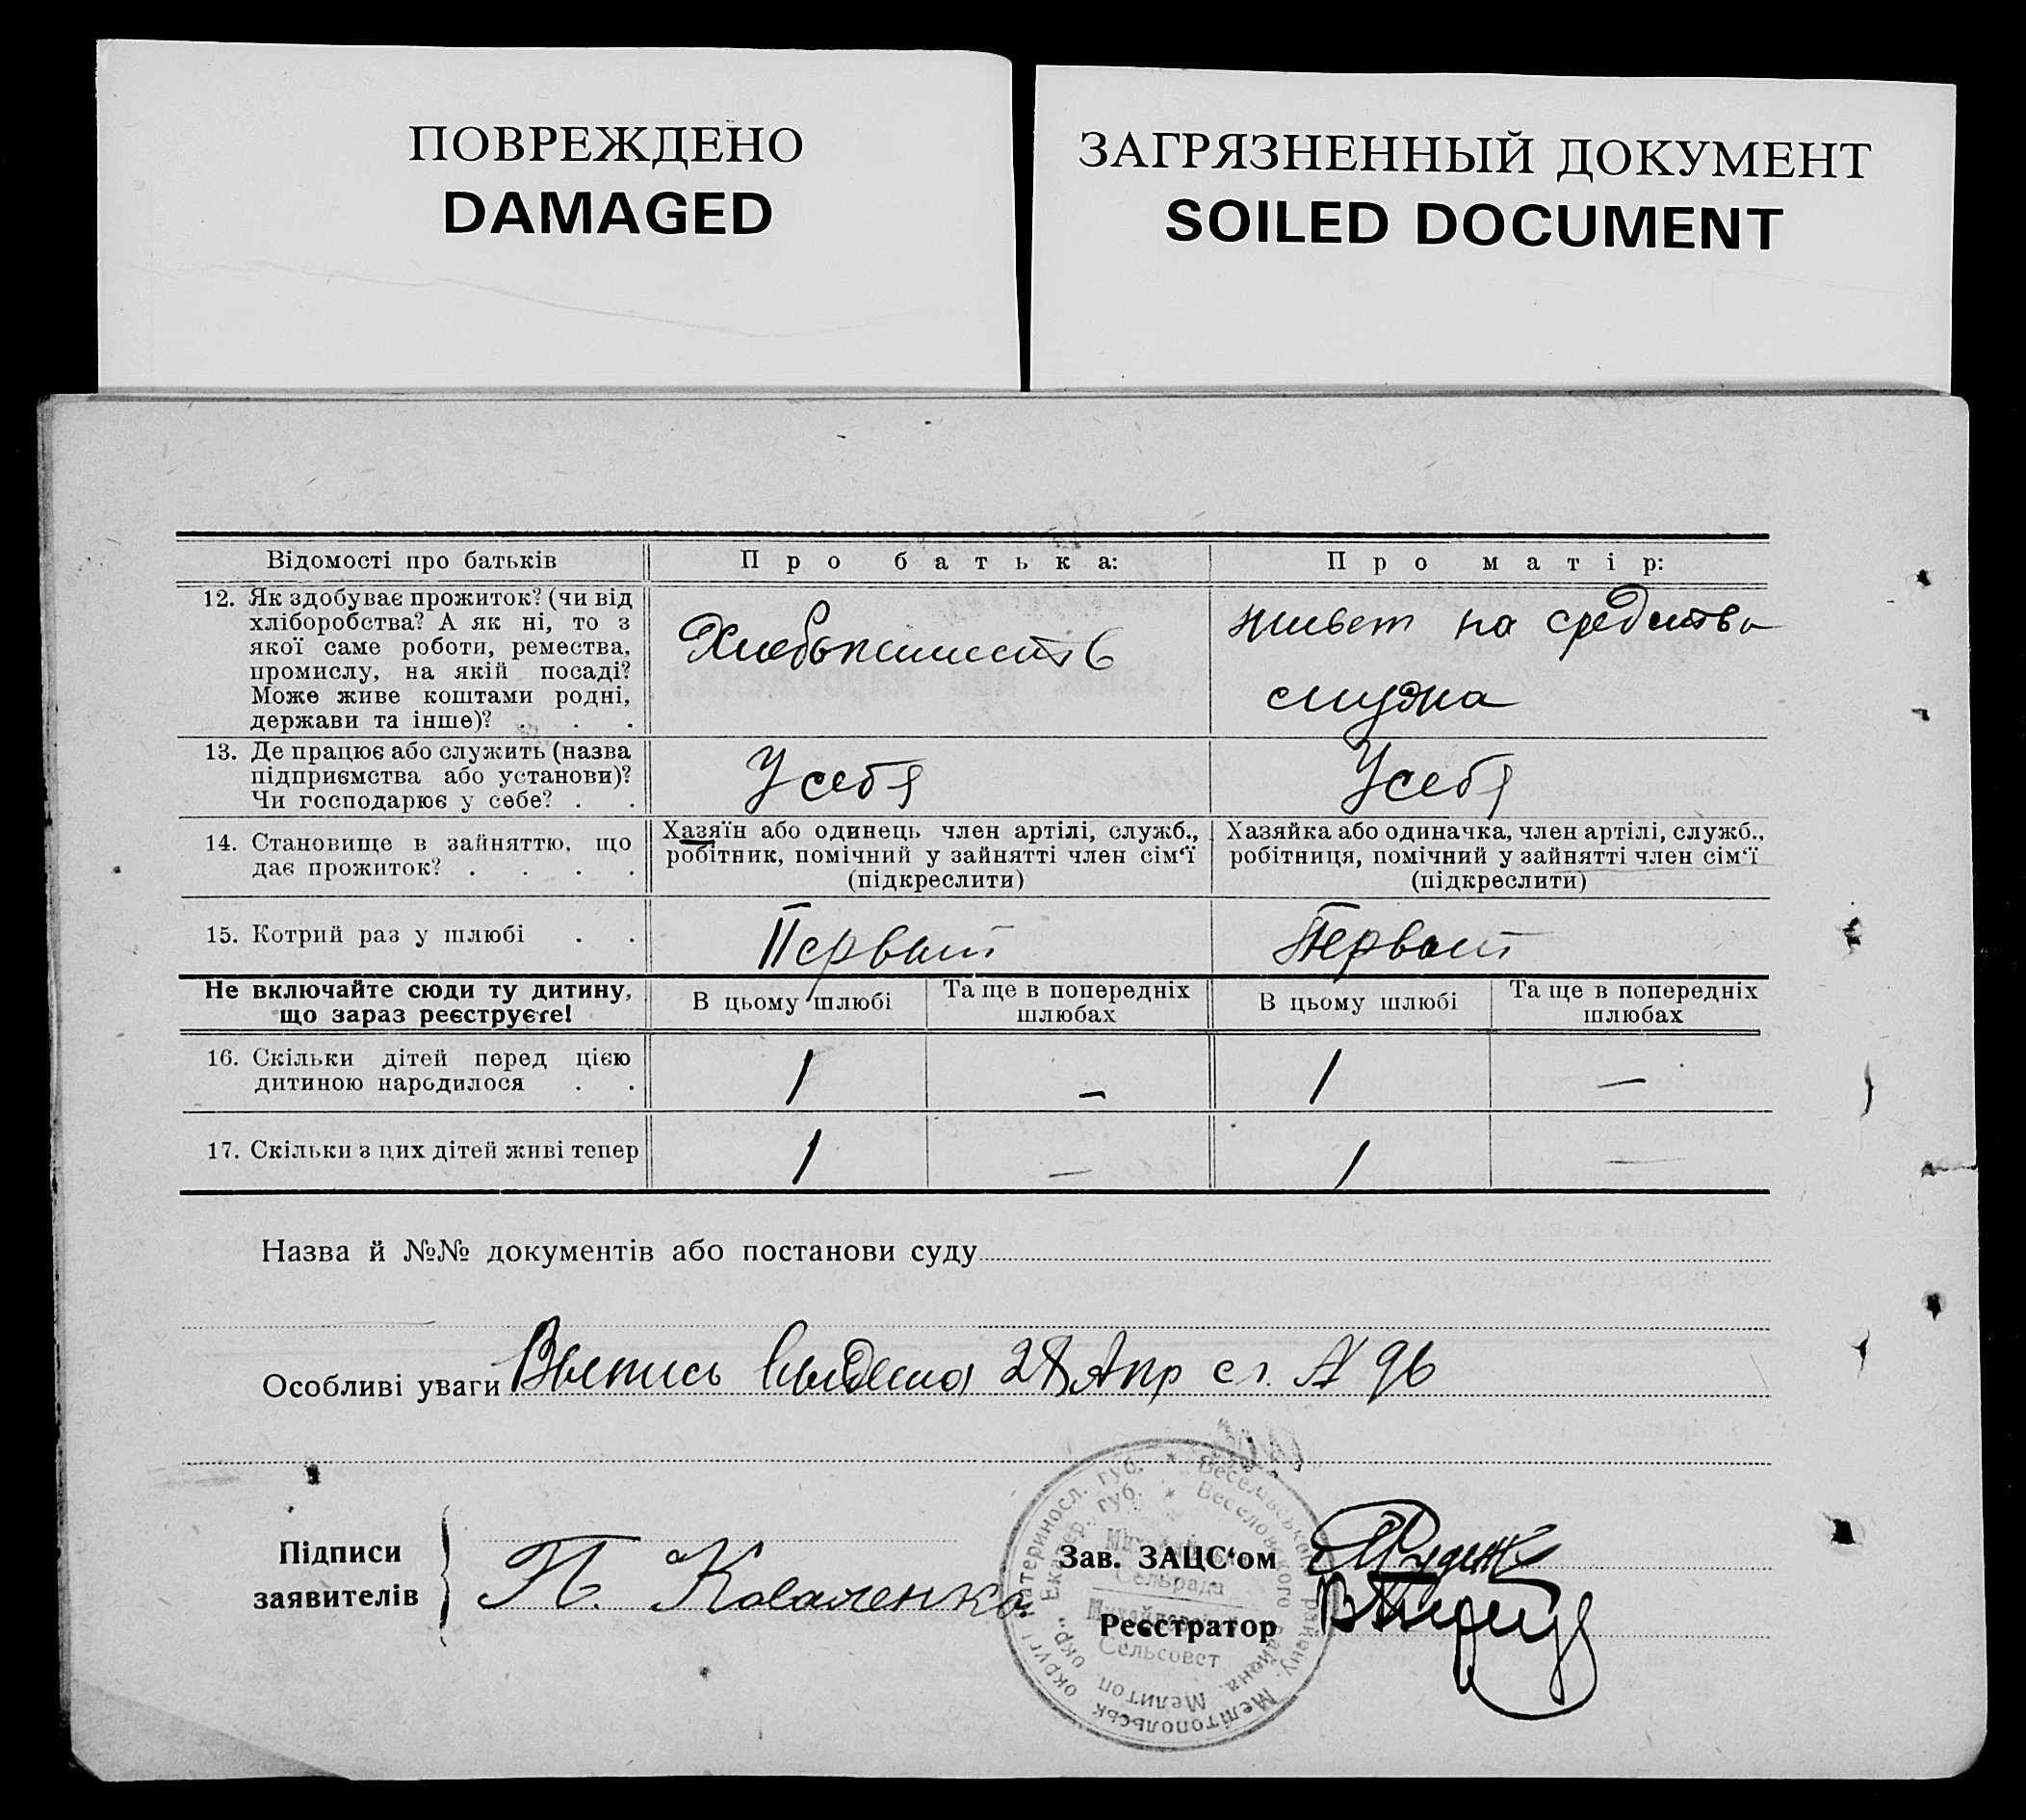 ПОВРЕЖДЕНО
DAMAGED
ЗАГРЯЗНЕННЫЙ ДОКУМЕНТ
SOILED DOCUMENT
Відомості про батьків
Про батька:
Про матір:
12. Як здобуває прожиток? (чи від
хліборобства? А як ні, то з
якої саме роботи, ремества,
промислу, на якій посаді?
Може живе коштами родні,
держави та інше)? . . .
живет на средства
мужа
13. Де працює або служить (назва
підприємства або установи)?
Чи господарює у себе? . .
У себя
У себя
14. Становище в зайняттю, що
дає прожиток? . . . .
Хазяїн або одинець член артілі, служб.,
робітник, помічний у зайнятті член сім‘ї
(підкреслити)
Хазяйка або одиначка, член артілі, служб.,
робітниця, помічний у зайнятті член сім‘ї
(підкреслити)
15. Котрий раз у шлюбі . .
Первый
Первый
Не включайте сюди ту дитину,
що зараз реєструєте!
В цьому шлюбі
Та ще в попередніх
шлюбах
В цьому шлюбі
Та ще в попередніх
шлюбах
16. Скільки дітей перед цією
дитиною народилося . .
1
—
1
—
17. Скільки з цих дітей живі тепер
1
—
1
—
Назва й №№ документів або постанови суду
Особливі уваги Выпись выдана 28 Апр с г. № 96
Підписи
заявителів
П. Коваленко
Зав. ЗАЦС‘ом
Реєстратор
Катериносл. губ. * Весельського району. Мелітопольськ округи
Екатер. губ. * Веселовского района. Мелитоп. окр.
Сельрада
Сельсовет